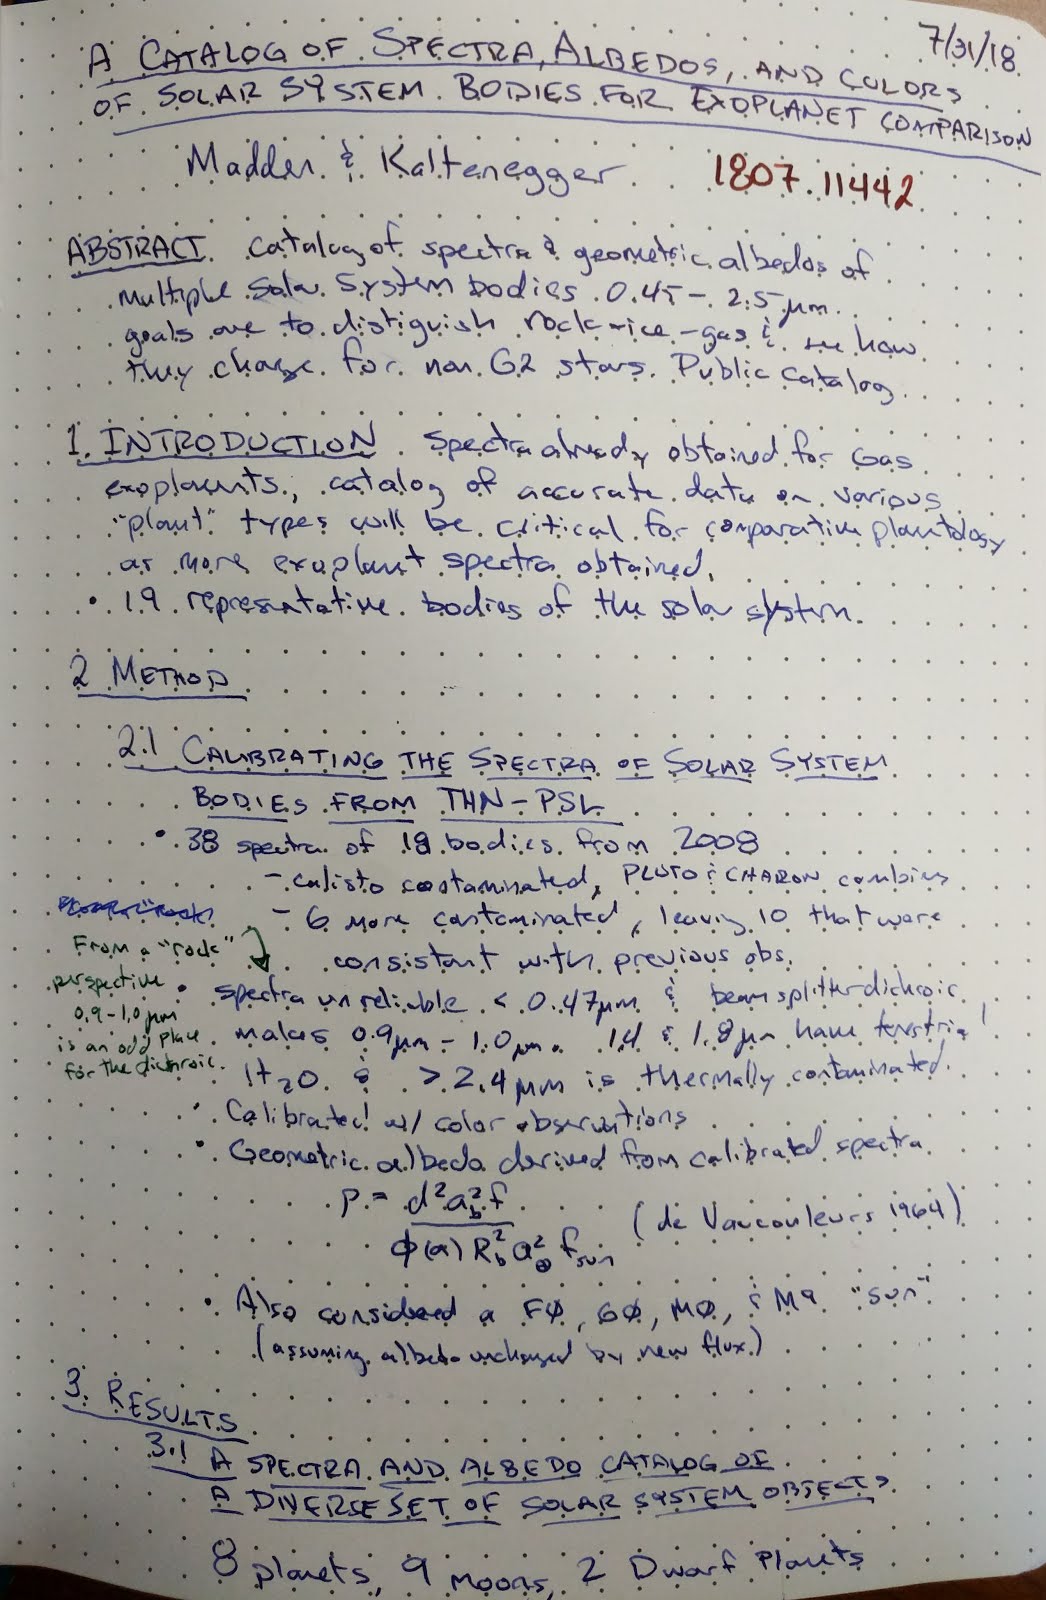 7/31/18
A CATALOG OF SPECTRA, ALBEDOS, AND COLORS
OF SOLAR SYSTEM BODIES FOR EXOPLANET COMPARISON
Madden & Kaltenegger 1807.11442
ABSTRACT catalog of spectra & geometric albedos of
multiple Solar System bodies 0.45 - 2.5 μm.
goals are to distiguish rock-ice-gas & see how
they change for non G2 stars. Public Catalog
1. INTRODUCTION spectra already obtained for Gas
exoplanents, catalog of accurate data on various
"plant" types will be critical for comparative plantology
as more exoplant spectra obtained.
• 19 represntative bodies of the solar system.
2 METHOD
2.1 CALIBRATING THE SPECTRA OF SOLAR SYSTEM
BODIES FROM THN-PSL
• 38 spectra of 18 bodies from 2008
- calisto contaminated, PLUTO & CHARON combins
- 6 more contaminated, leaving 10 that were
consistant with previous obs.
From a "rock"
perspective
0.9-1.0 μm
is an odd place
for the dichroic.
• spectra unreliable < 0.47μm & beamsplitter dichroic
makes 0.9μm - 1.0μm. 1.4 & 1.8μm have terstrial
H2O & > 2.4 μm is thermally contaminated.
• Calibrated w/ color observations
• Geometric albedo derived from calibrated spectra
p = d²a_b²f / φ(α) R_b² a_⊕² f_sun (de Vaucouleurs 1964)
• Also considered a FØ, GØ, MØ, & M9 "sun"
(assuming albedo unchanged by new flux)
3. RESULTS
3.1 A SPECTRA AND ALBEDO CATALOG OF
A DIVERSE SET OF SOLAR SYSTEM OBJECTS
8 planets, 9 moons, 2 Dwarf Planets